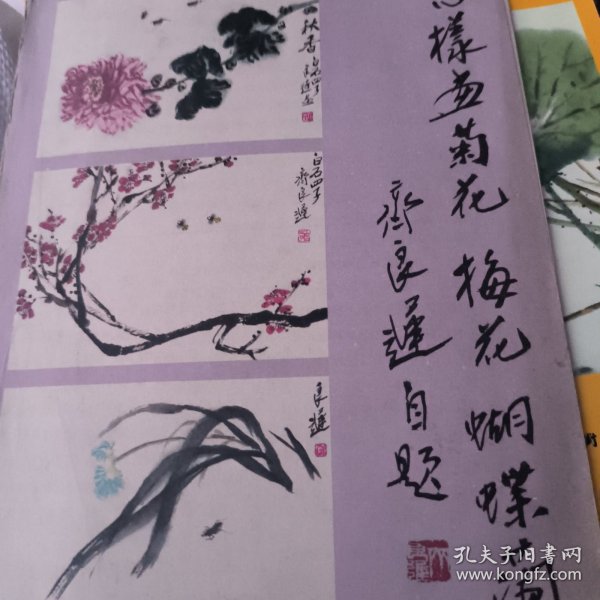 怎樣画菊花 梅花 蝴蝶蘭
齊良遲自題
秋香
白石四子
白石四子
齊良遲
良遲
孔夫子旧书网
www.kongfz.com